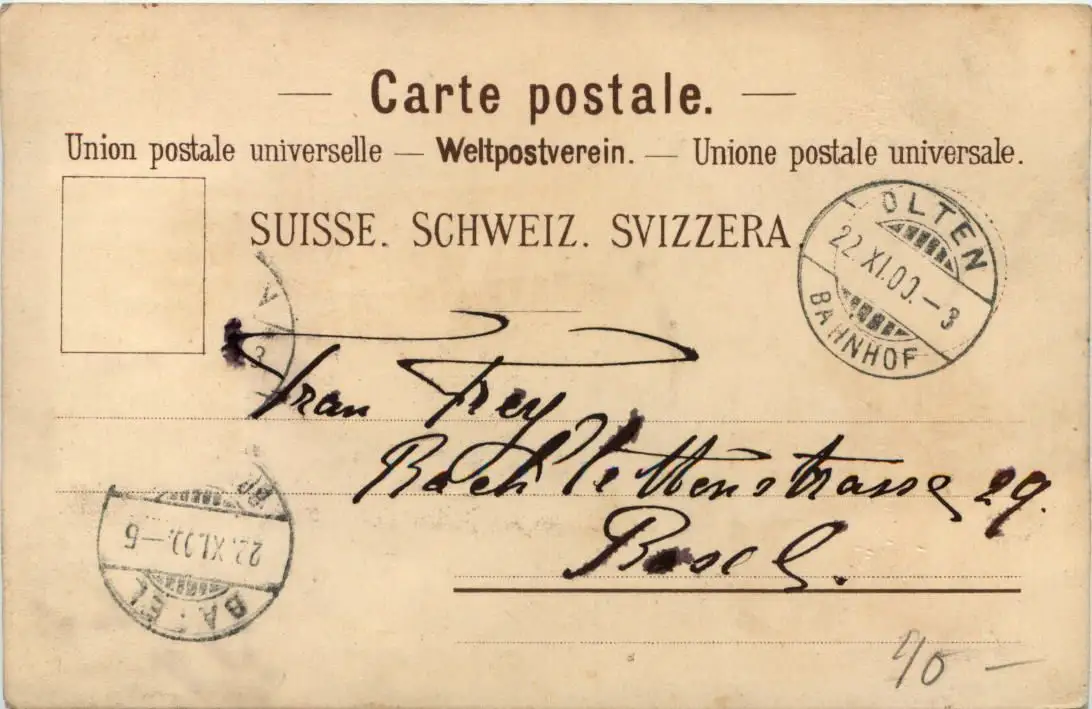 — Carte postale. —
Union postale universelle — Weltpostverein. — Unione postale universale.
SUISSE. SCHWEIZ. SVIZZERA.
OLTEN
22.XI.00.–3
BAHNHOF
Frau Frey
Bachlettenstrasse 29.
Basel.
22.XI.00.–5
BASEL